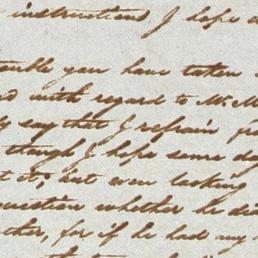 instructions I hope
trouble you have taken
with regard to Mr M
say that I refrain
though I hope some day
it, but even looking
question whether he di
ther, for if he had any